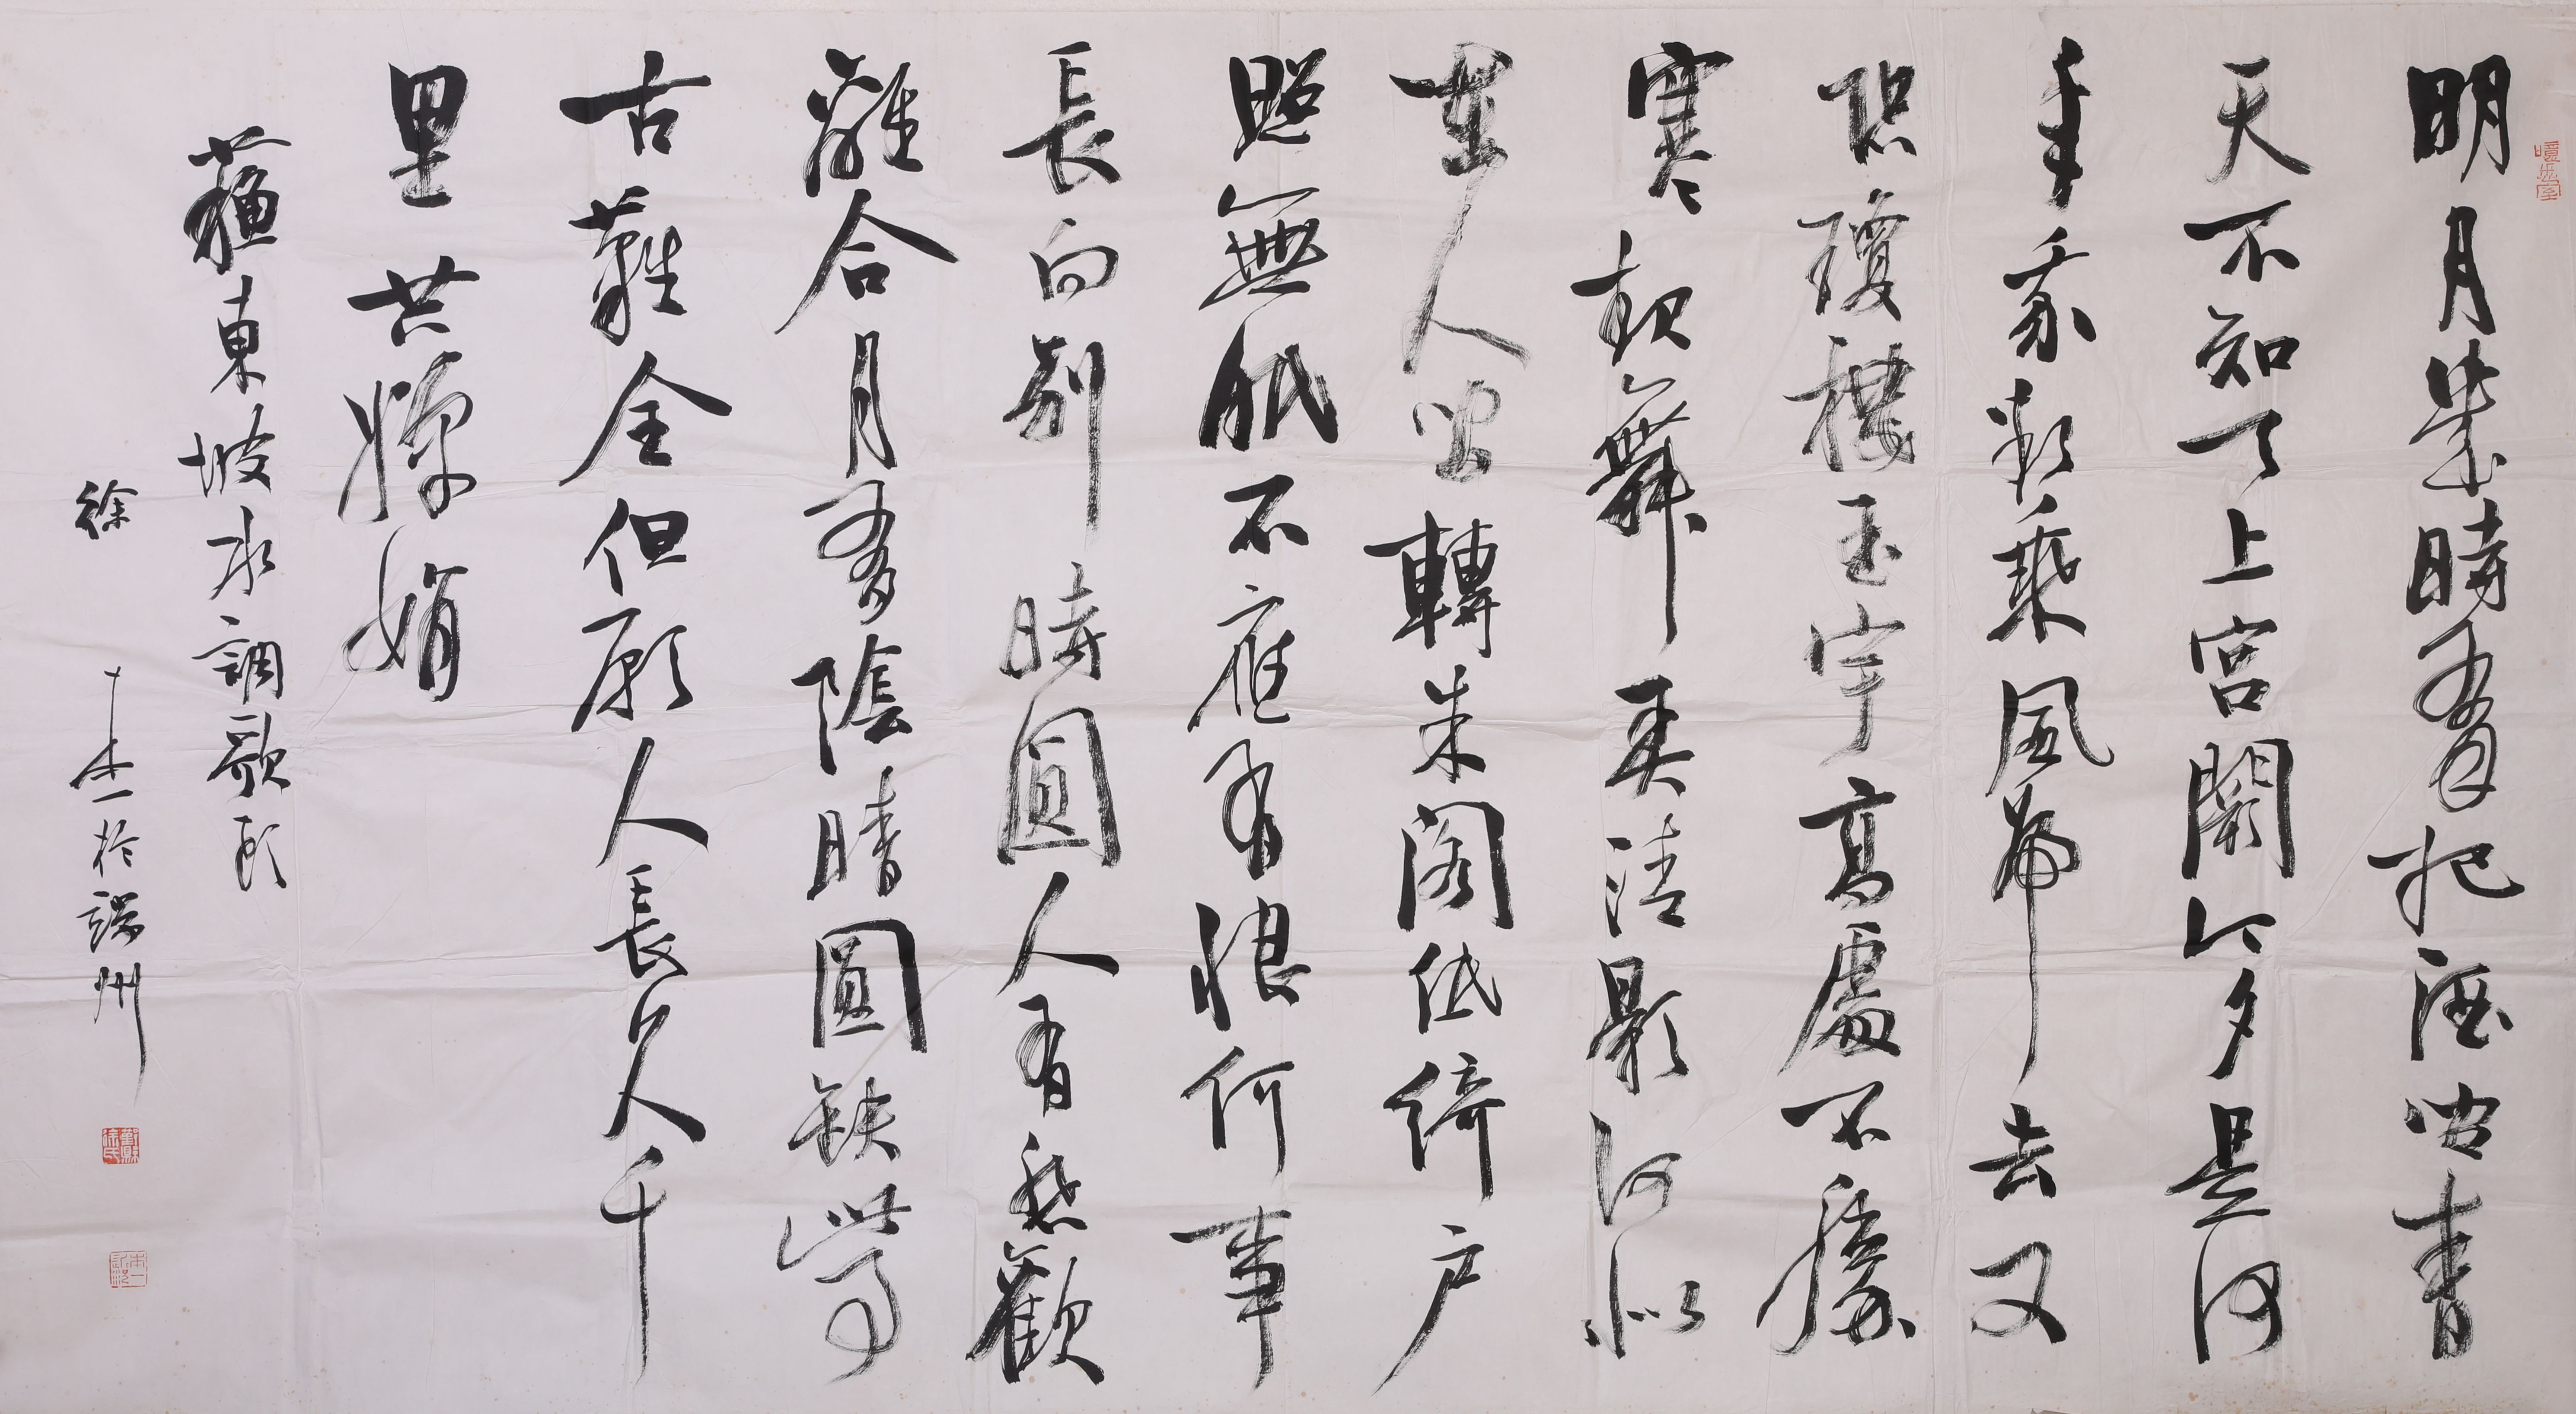 明月幾時有把酒问青
天不知天上宮闕今夕是何
年我欲乘風歸去又
恐瓊樓玉宇高處不勝
寒起舞弄清影何似
在人间轉朱阁低綺户
照無眠不應有恨何事
長向别時圓人有悲歡
離合月有陰晴圓缺此事
古難全但願人長久千
里共嬋娟
蘇東坡水調歌頭
徐 於端州